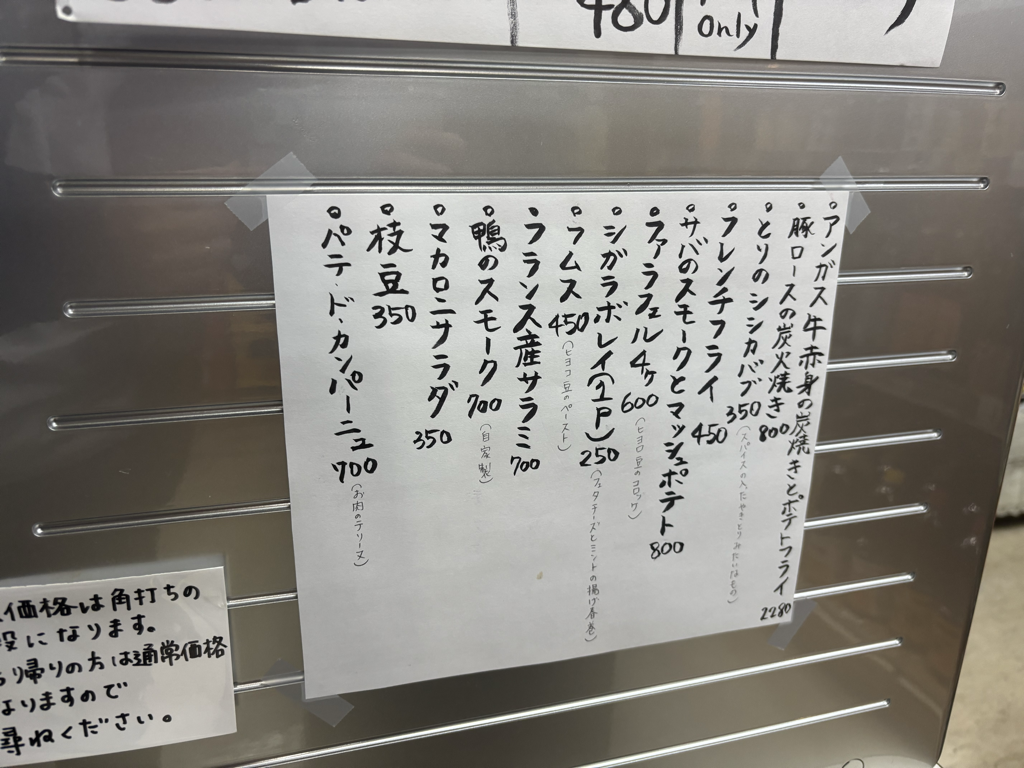 480
only
・アンガス牛赤身の炭焼きとポテトフライ 2280
・豚ロースの炭火焼き 800
・とりのシシカバブ 350 (スパイスの入ったやきとりみたいなもの)
・フレンチフライ 450
・サバのスモークとマッシュポテト 800
・ファラフェル 4ケ 600 (ヒヨコ豆のコロッケ)
・シガラボレイ(1P) 250 (フェタチーズとミントの揚げ春巻)
・フムス 450 (ヒヨコ豆のペースト)
・フランス産サラミ 700
・鴨のスモーク 700 (自家製)
・マカロニサラダ 350
・枝豆 350
・パテ・ド・カンパーニュ 700 (お肉のテリーヌ)
価格は角打ちの
段になります。
り帰りの方は通常価格
なりますので
尋ねください。